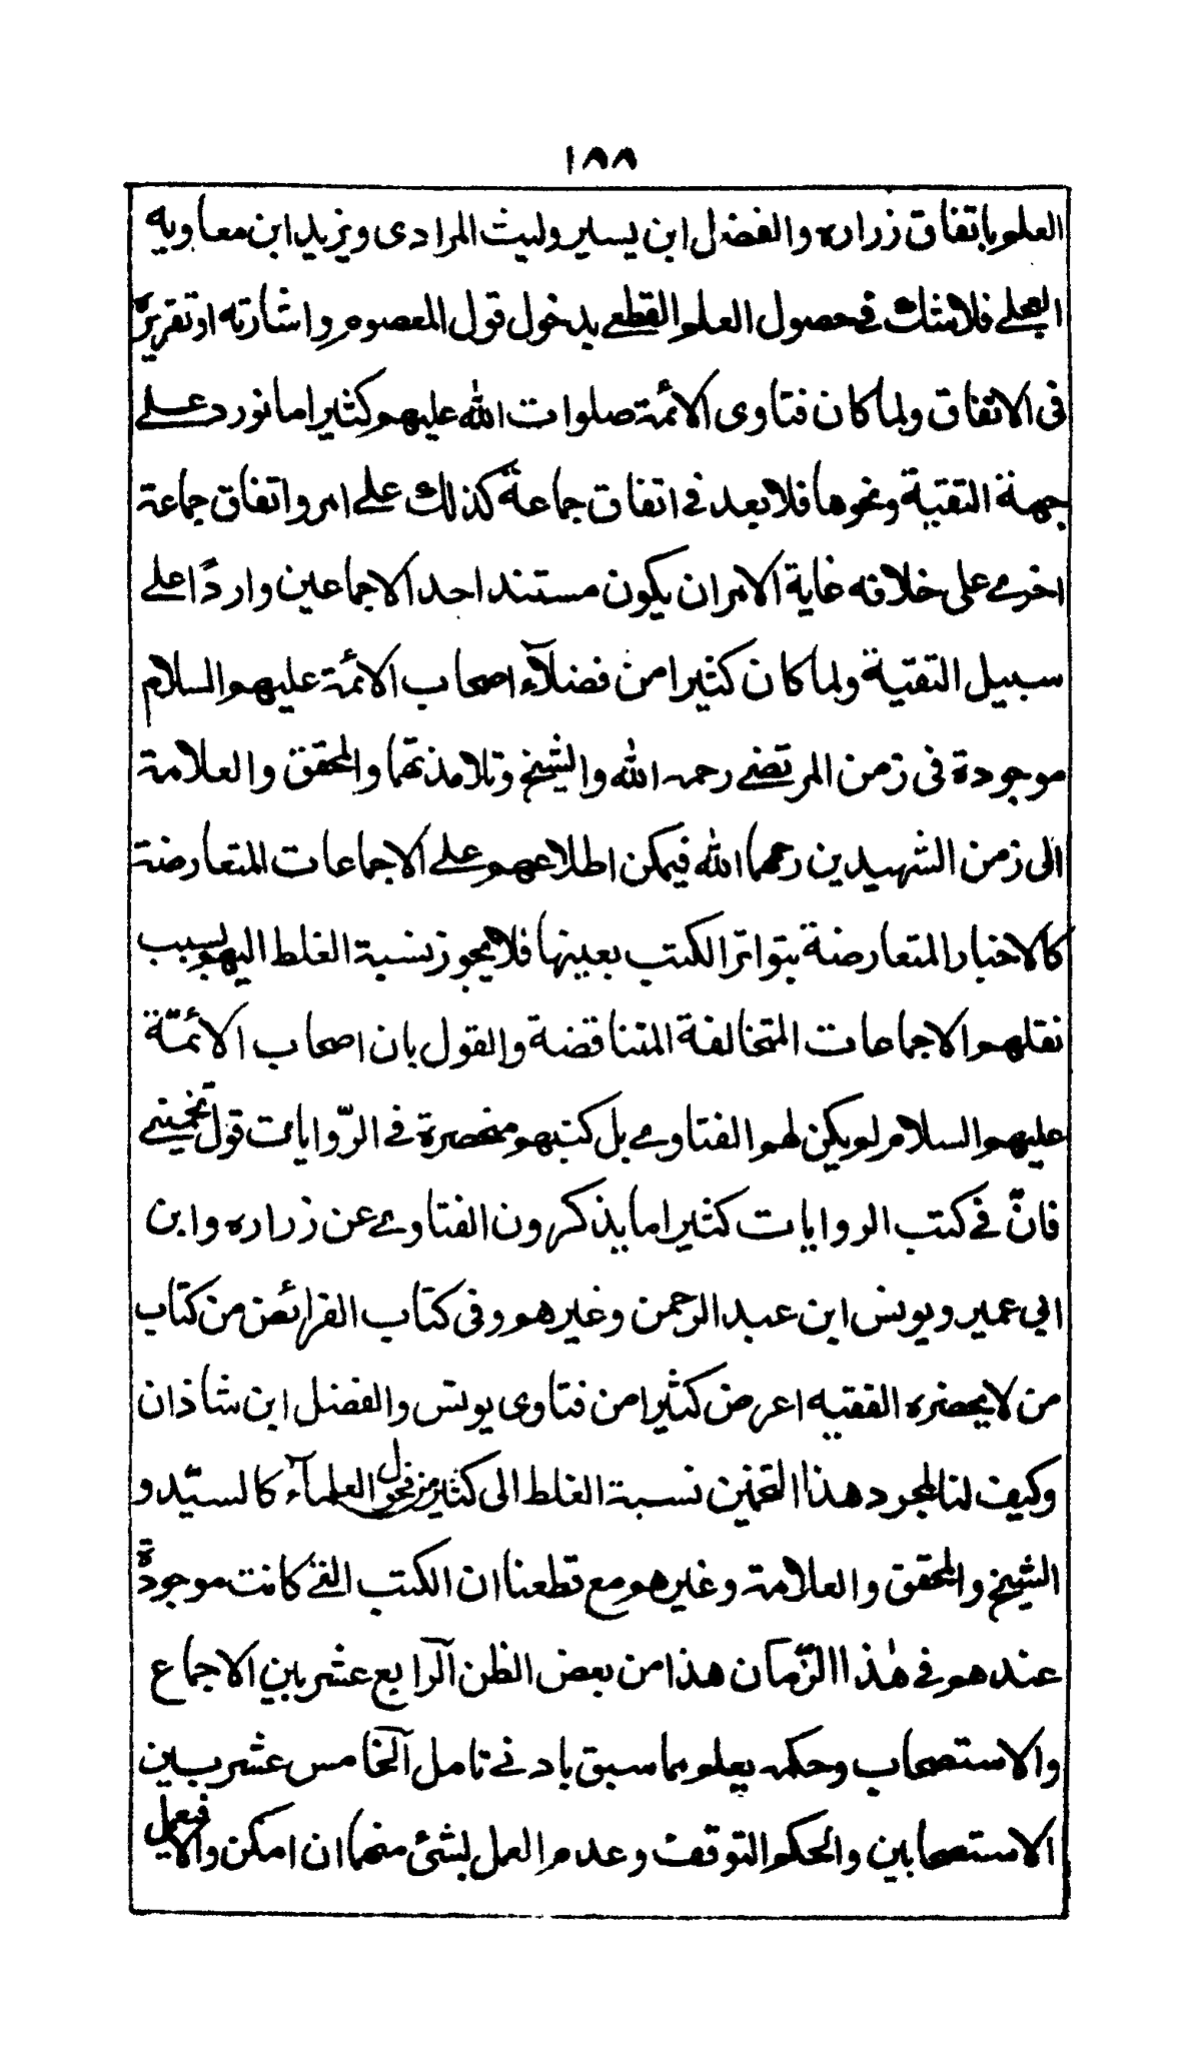 ١٨٨
العلم باتفاق زراره والفضل ابن يسير وليث المرادى ويزيد ابن معاويه
العجلي فلا شك في حصول العلم القطعي بدخول قول المعصوم واشارته او تقريره
فى الاتفاق ولما كان فتاوى الائمة صلوات الله عليهم كثيرا ما نورد علے
جهة التقية ونحوها فلا بعد في اتفاق جماعة كذلك علے امر واتفاق جماعة
اخرے على خلافه غاية الامر ان يكون مستند احد الاجماعين واردًا علے
سبيل التقية ولما كان كثيرا من فضلآء اصحاب الائمة عليهم السلام
موجودة فى زمن المرتضے رحمه الله والشيخ وتلامذتهما والمحقق والعلامة
الى زمن الشهيدين رحمهما الله فيمكن اطلاعهم علے الاجماعات المتعارضة
كالاخبار المتعارضة بتواتر الكتب بعينها فلا يجوز نسبة الغلط اليهم بسبب
نقلهم الاجماعات المتخالفة المتناقضة والقول بان اصحاب الائمّة
عليهم السلام لم يكن لهم الفتاوے بل كتبهم منحصرة في الرّوايات قول تخمينے
فانّ في كتب الروايات كثيرا ما يذكرون الفتاوے عن زراره وابن
ابي عمير ويونس ابن عبد الرحمن وغيرهم وفى كتاب الفرائض من كتاب
من لا يحضره الفقيه اعرض كثيرا من فتاوى يونس والفضل ابن شاذان
وكيف لنا لمجرد هذا التخمين نسبة الغلط الى كثير من فحول العلمآء كالسيّد و
الشيخ والمحقق والعلامة وغيرهم مع قطعنا ان الكتب التي كانت موجودة
عندهم في هٰذا الزّمان هذا من بعض الظن آلرابع عشر بين الاجماع
والاستصحاب وحكمه يعلم مما سبق بادنے تامل آلخامس عشر بين
الاستصحابين والحكم التوقف وعدم العمل بشئ منهما ان امكن والا فيعمل